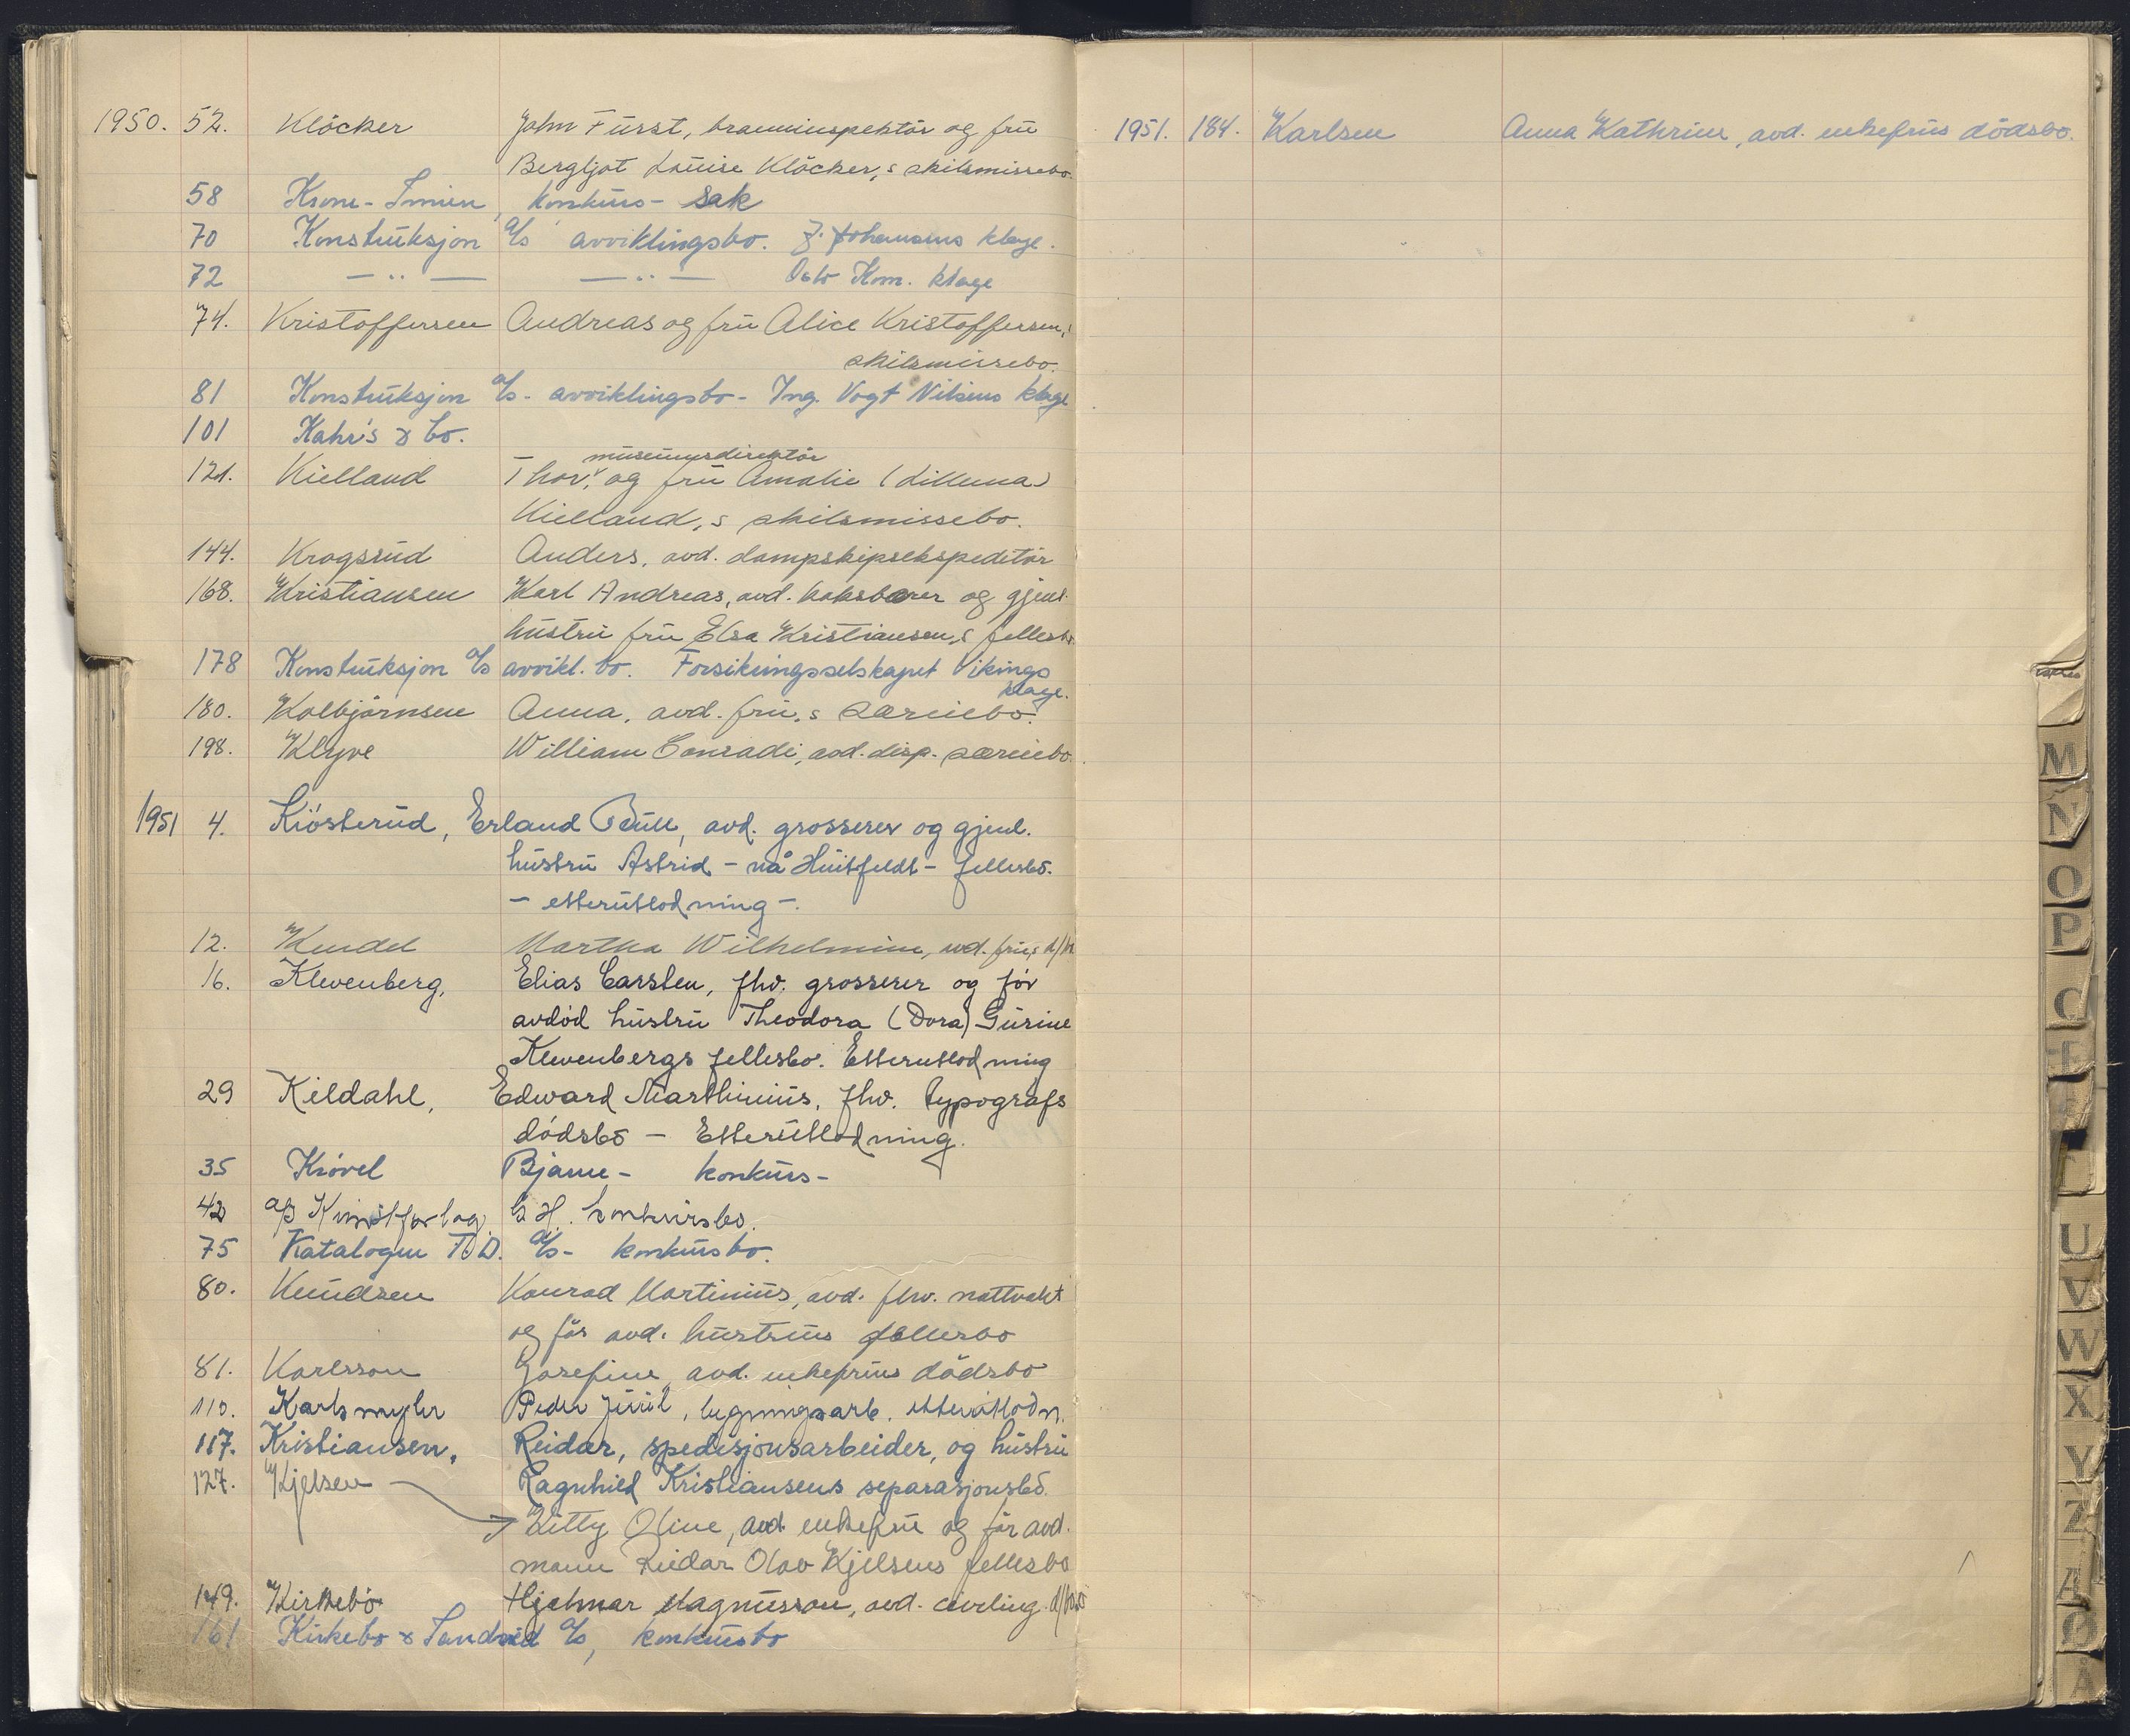 1950. 52. Klöcker John Fürst, branninspektör og frü
Bergljot Louise Klöcker,s skilsmissebo.
58 Krone- konkurs- sak
70 Konstruksjon a/s avviklingsbo. J. Johansens klage.
72 — " — — " — Oslo Kom. klage
74. Kristoffersen Andreas og frü Alice Kristoffersen,s
skilsmissebo.
81 Konstruksjon a/s - avviklingsbo - Ing. Vogt Nilsens klage
101 Kahrs & Co.
museumsdirektör
121. Kielland Thor, og frü Amalie (Lillema)
Kielland,s skilsmissebo.
144. Krogsrud Anders, avd. dampskipsekspeditör
168. Kristiansen Karl Andreas, avd. koksbærer og gjenl.
hustru fru Elsa Kristiansen,s fellesbo
178 Konstruksjon a/s avvikl. bo. Forsikringsselskapet Vikings
klage.
180. Kolbjörnsen Anna, avd. frü,s særiebo.
198. Klyve William Conradi, avd. disp. særiebo.
1951 4. Kiösterud, Erland Bull, avd. grosserer og gjenl.
hustru Astrid - nå Huitfeldt - fellesbo.
- etterutlodning -.
12. Kendel Martha Wilhelmine, avd. frü,s d/bo
16. Klevenberg, Elias Carsten, fhv. grosserer og før
avdød hustru Theodora (Dora) Gurine
Klevenbergs fellesbo. Etterutlodning
29 Kildahl, Edward Marthinius, fhv. typografs
dødsbo - Etterutlodning.
35 Krövel Bjarne - konkurs -
42 a/s Kunstforlag G. H. konkursbo.
75 Katalogen a/s - konkursbo.
80. Knudsen Konrad Martinius, avd. fhv. nattvakt
og för avd. hustrus fellesbo
81. Karlsson Josefine, avd. enkefrus dödsbo
110. Karlsmyhr Peder bygningsarb. etterutlodn.
117. Kristiansen, Reidar, spedisjonsarbeider, og hustru
127. Kjelsen Ragnhild Kristiansens separasjonsbo.
Kitty Oline, avd. enkefru og för avd.
mann Reidar Olav Kjelsens fellesbo
149. Kirkebö Hjalmar Magnusson, avd. civiling. d/bo
161 Kirkebö & Sandvid a/s, konkursbo
1951. 184. Karlsen Anna Kathrine, avd. enkefrus dödsbo.
M
N
O
P
U
V
W
X
Y
Z
Æ
Ø
Å